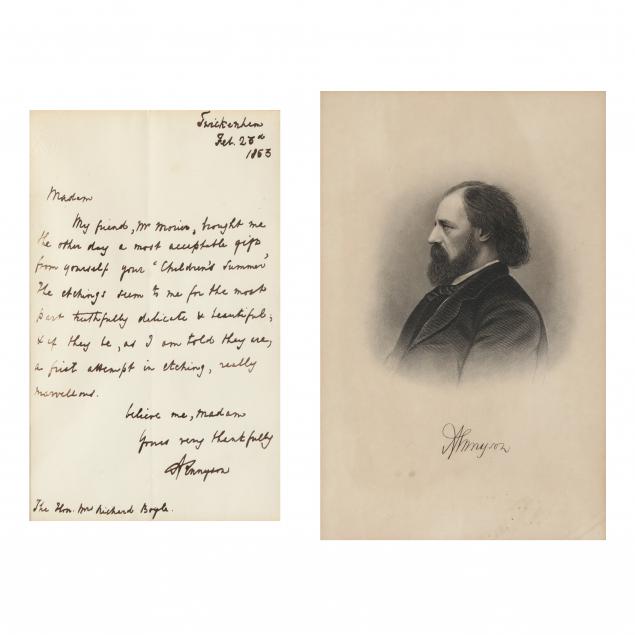 Twickenham
Feb. 23d
1853
Madam
My friend, Mr Morier, brought me
the other day a most acceptable gift
from yourself your "Children's Summer"
The etchings seem to me for the most
part truthfully delicate & beautiful;
& if they be, as I am told they are,
a first attempt in etching, really
marvellous.
believe me, Madam
Yours very thankfully
ATennyson
The Hon. Mrs Richard Boyle.
ATennyson